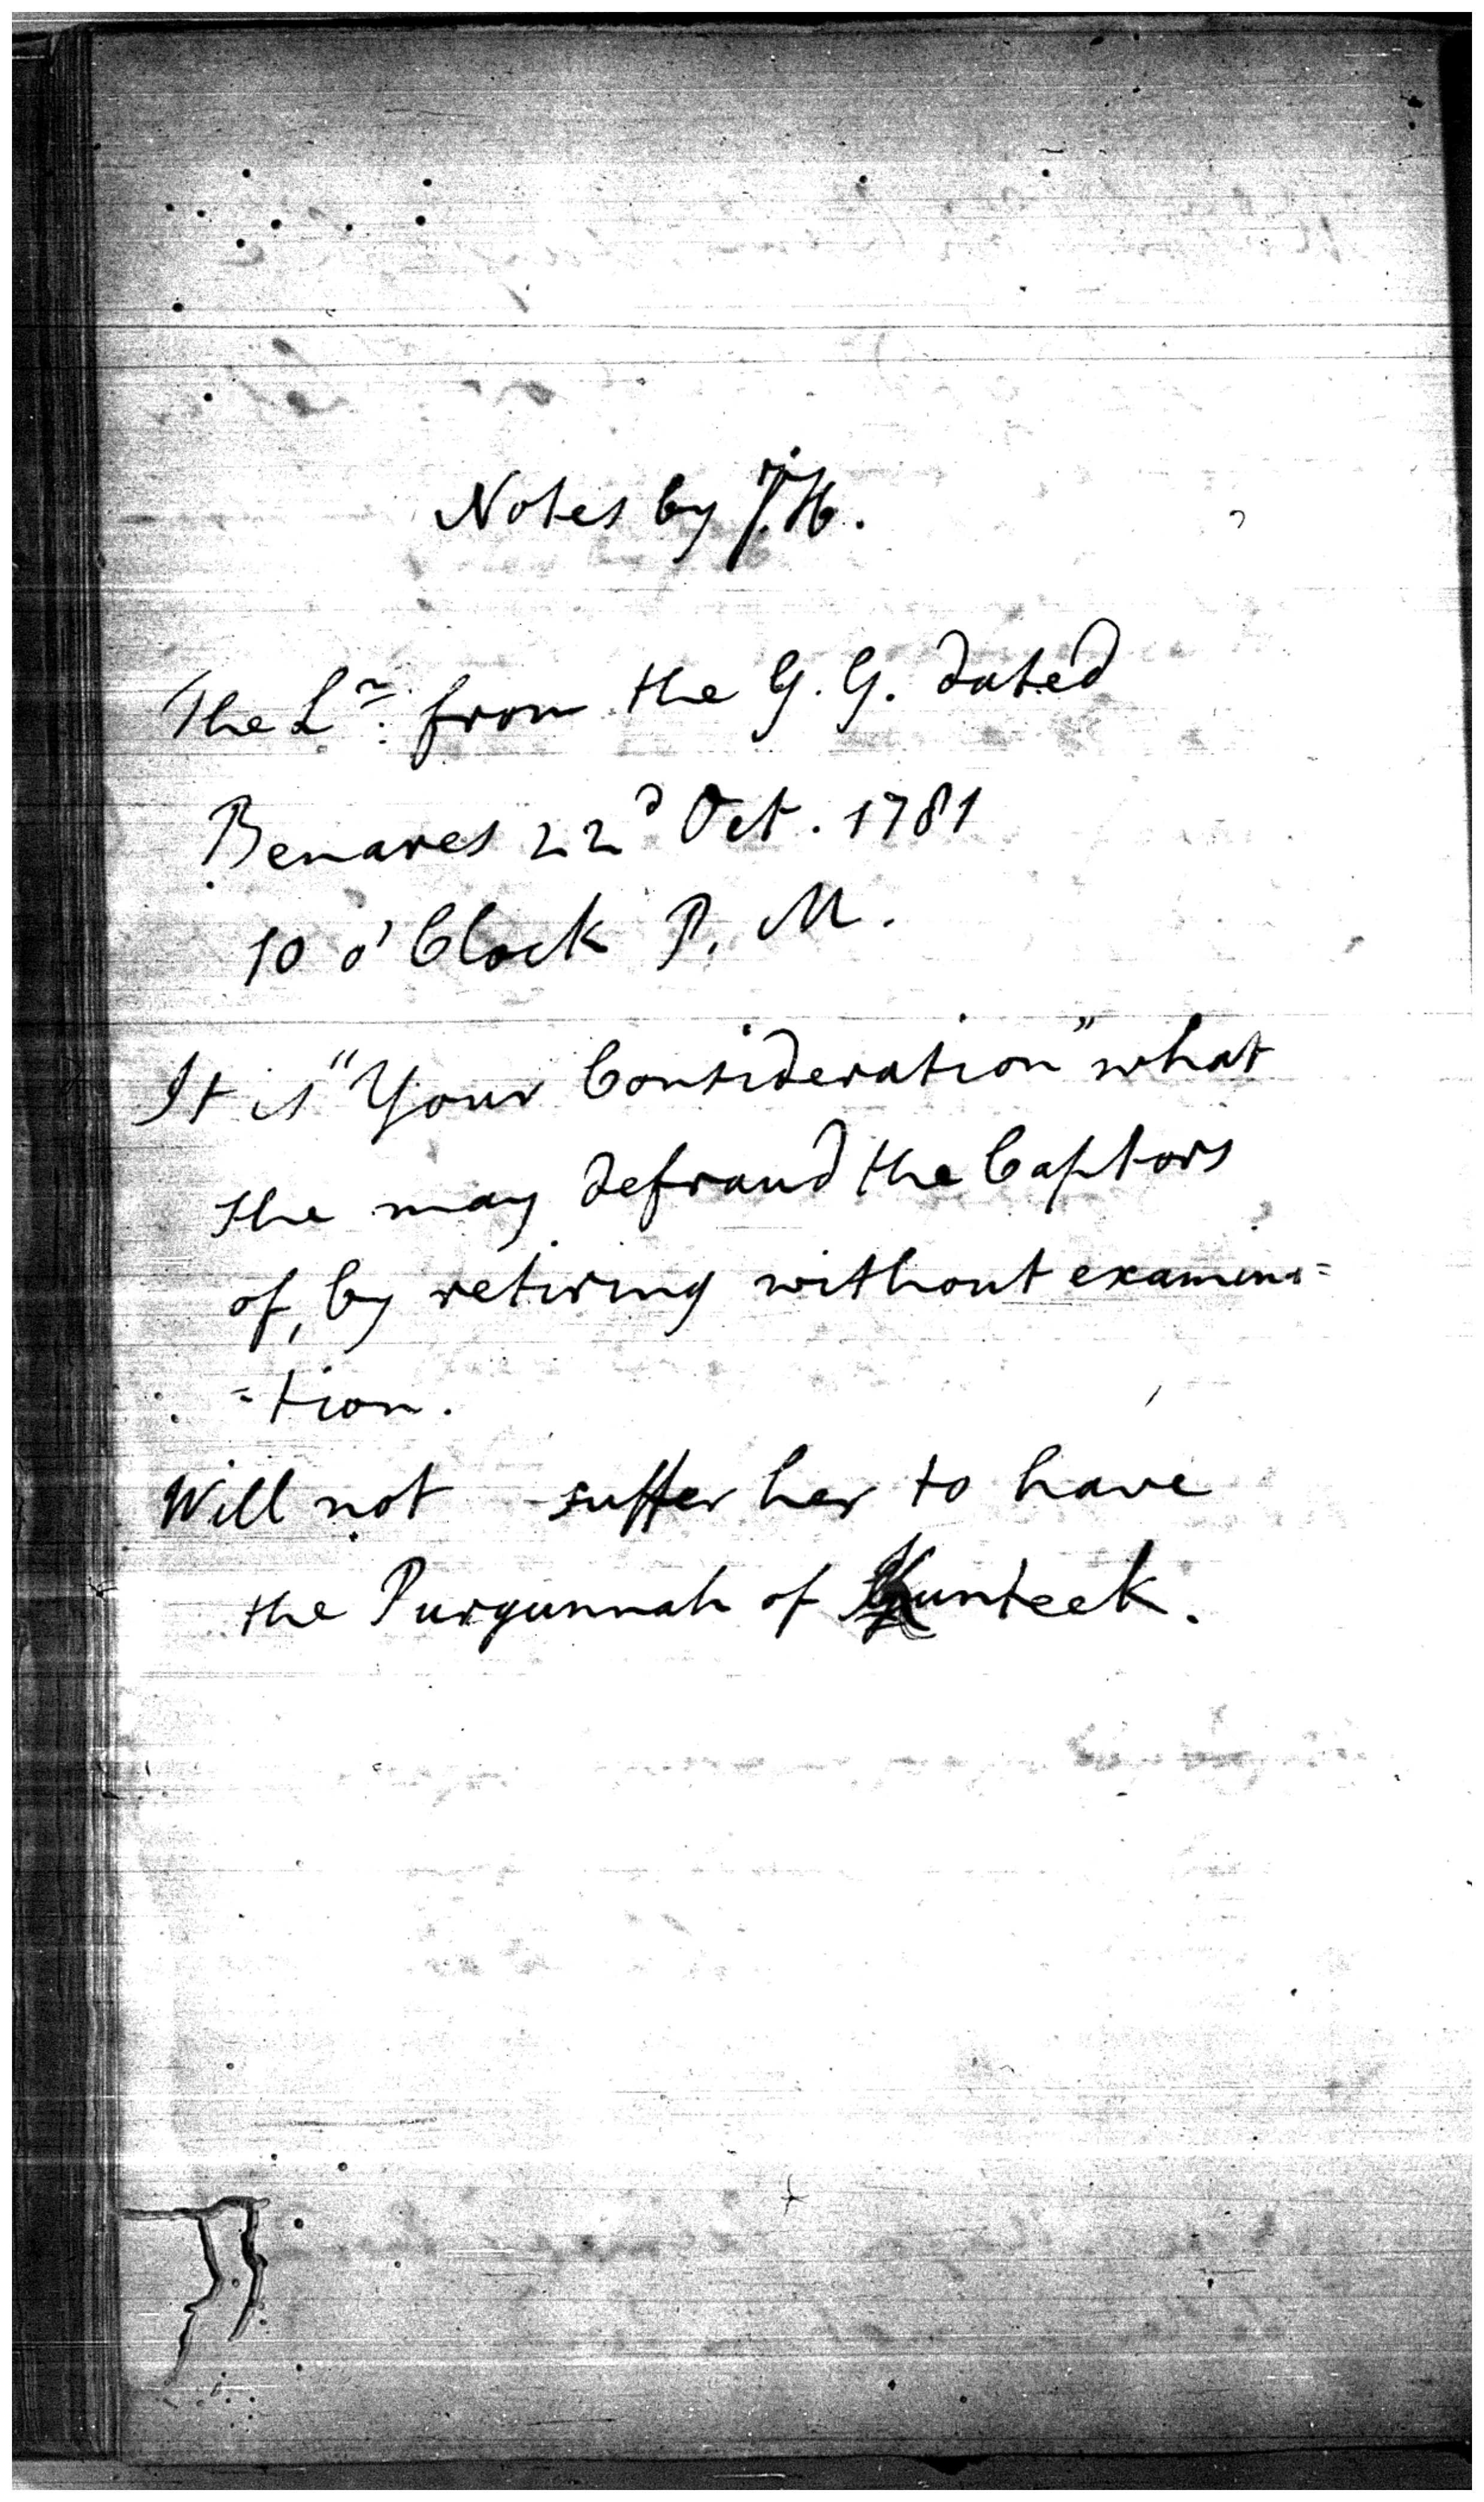 Notes by T.H.
The Lr. from the G.G. dated
Benares 22d Oct. 1781
10 o'Clock P.M.
It is "Your Consideration" what
she may defraud the Captors
of, by retiring without examina=
=tion.
Will not suffer her to have
the Purgunnah of Kunteek.